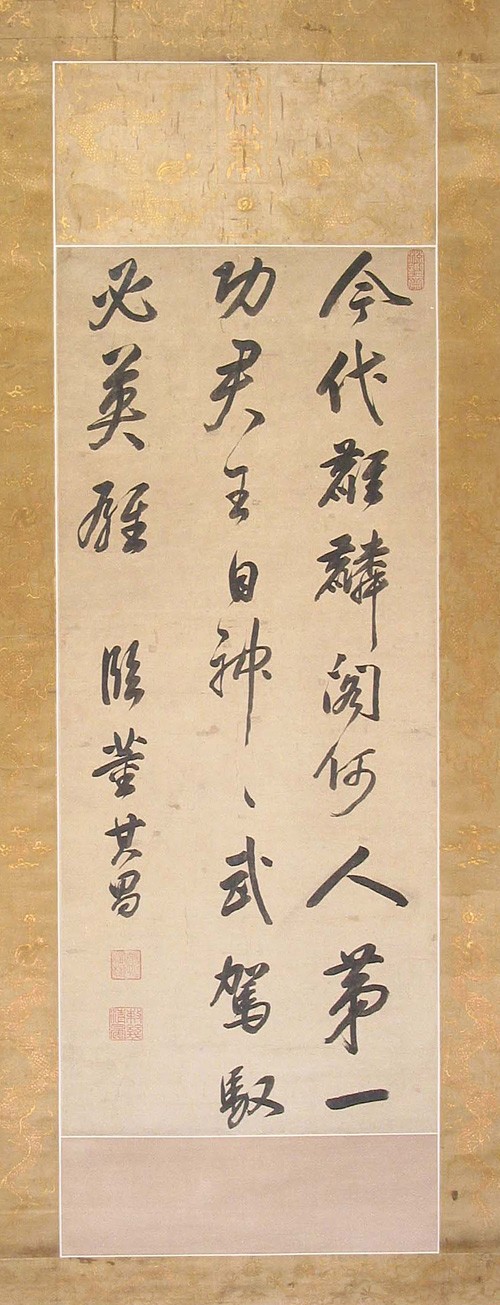 今代麒麟閣何人第一
功君王自神、武駕馭
必英雄 臨董其昌